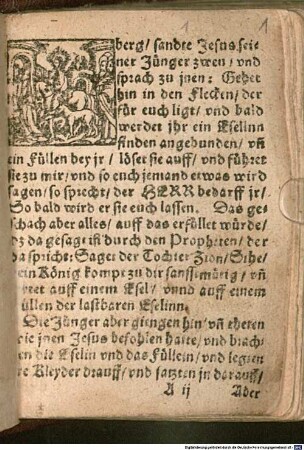 1 1
berg/ sandte Jesus sei-
ner Jünger zwen/ vnd
sprach zu jnen: Gehet
hin in den Flecken/ der
für euch ligt/ vnd bald
werdet jhr ein Eselinn
finden angebunden/ vñ
ein Füllen bey jr/ löset sie auff/ vnd führet
sie zu mir/ vnd so euch jemand etwas wird
sagen/ so sprecht/ der HERR bedarff jr/
So bald wird er sie euch lassen. Das ge-
schach aber alles/ auff das erfüllet würde/
dz da gesagt ist durch den Propheten/ der
da spricht: Saget der Tochter Zion/ Sihe/
ein König kompt zu dir sanfftmütig/ vñ
reitet auff einem Esel/ vnnd auff einem
Füllen der lastbaren Eselinn.
Die Jünger aber giengen hin/ vñ theten
wie jnen Jesus befohlen hatte/ vnd brach-
ten die Eselin vnd das Füllein/ vnd legten
re Kleyder drauff/ vnd satzten jn darauff/
A ij Aber